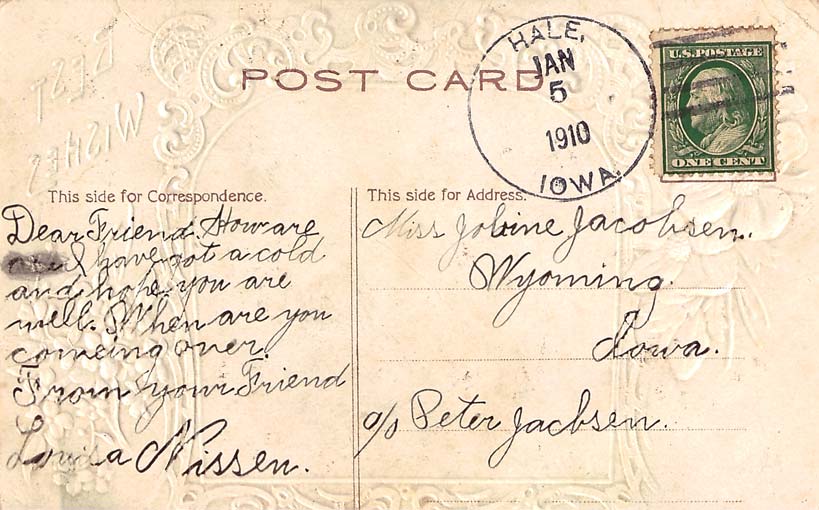 POST CARD
HALE,
JAN
5
1910
IOWA.
U.S. POSTAGE
ONE CENT
BEST
WISHES
This side for Correspondence.
Dear Friend. How are
I have got a cold
and hope you are
well. When are you
comeing over.
From your Friend
Louisa Nissen.
This side for Address.
Miss Joline Jacobsen.
Wyoming.
Iowa.
c/o Peter Jacbsen.